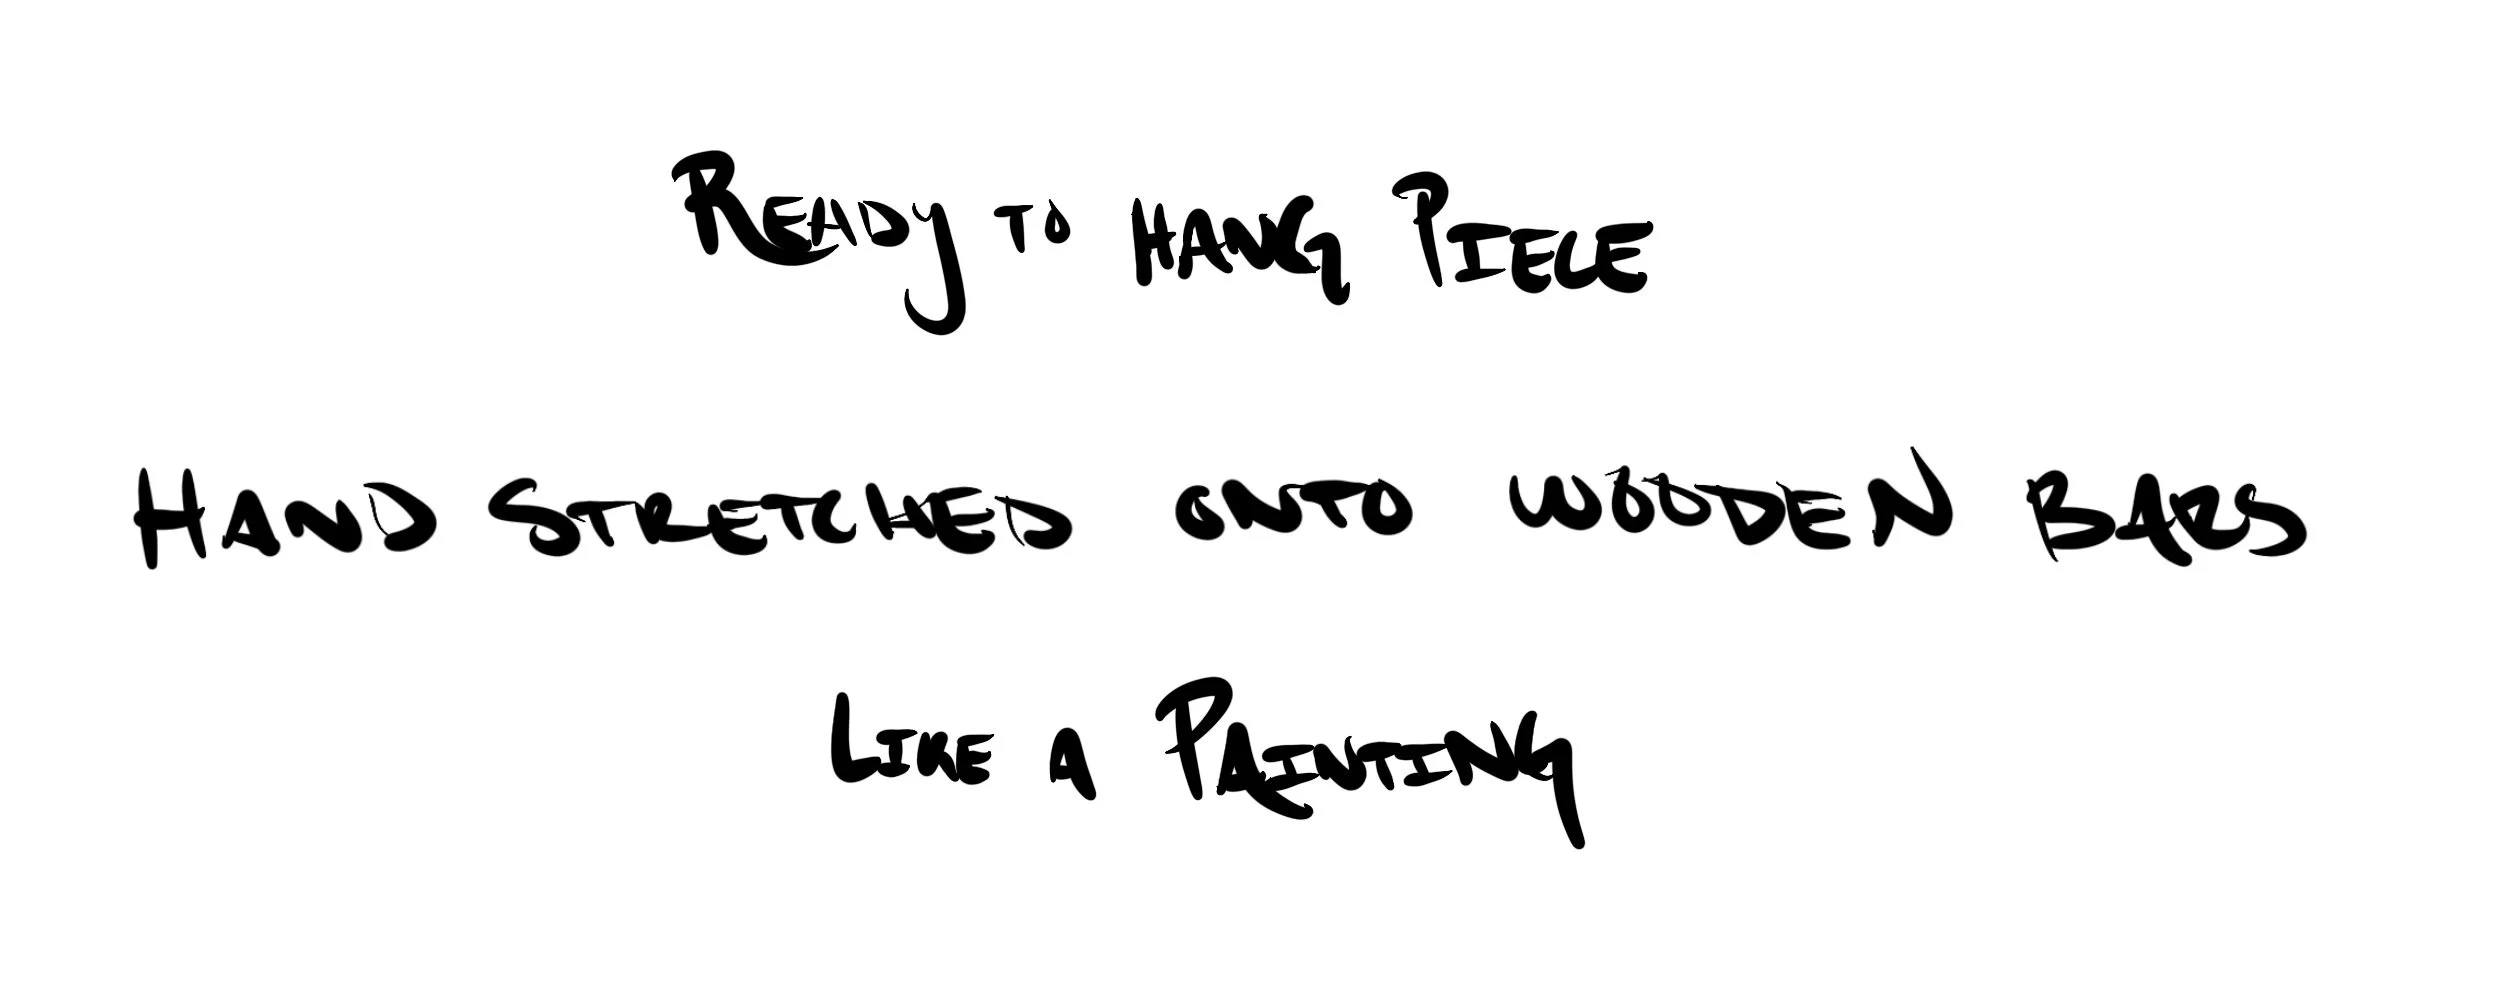 Ready to hang Piece
Hand stretched onto wooden bars
Like a Painting